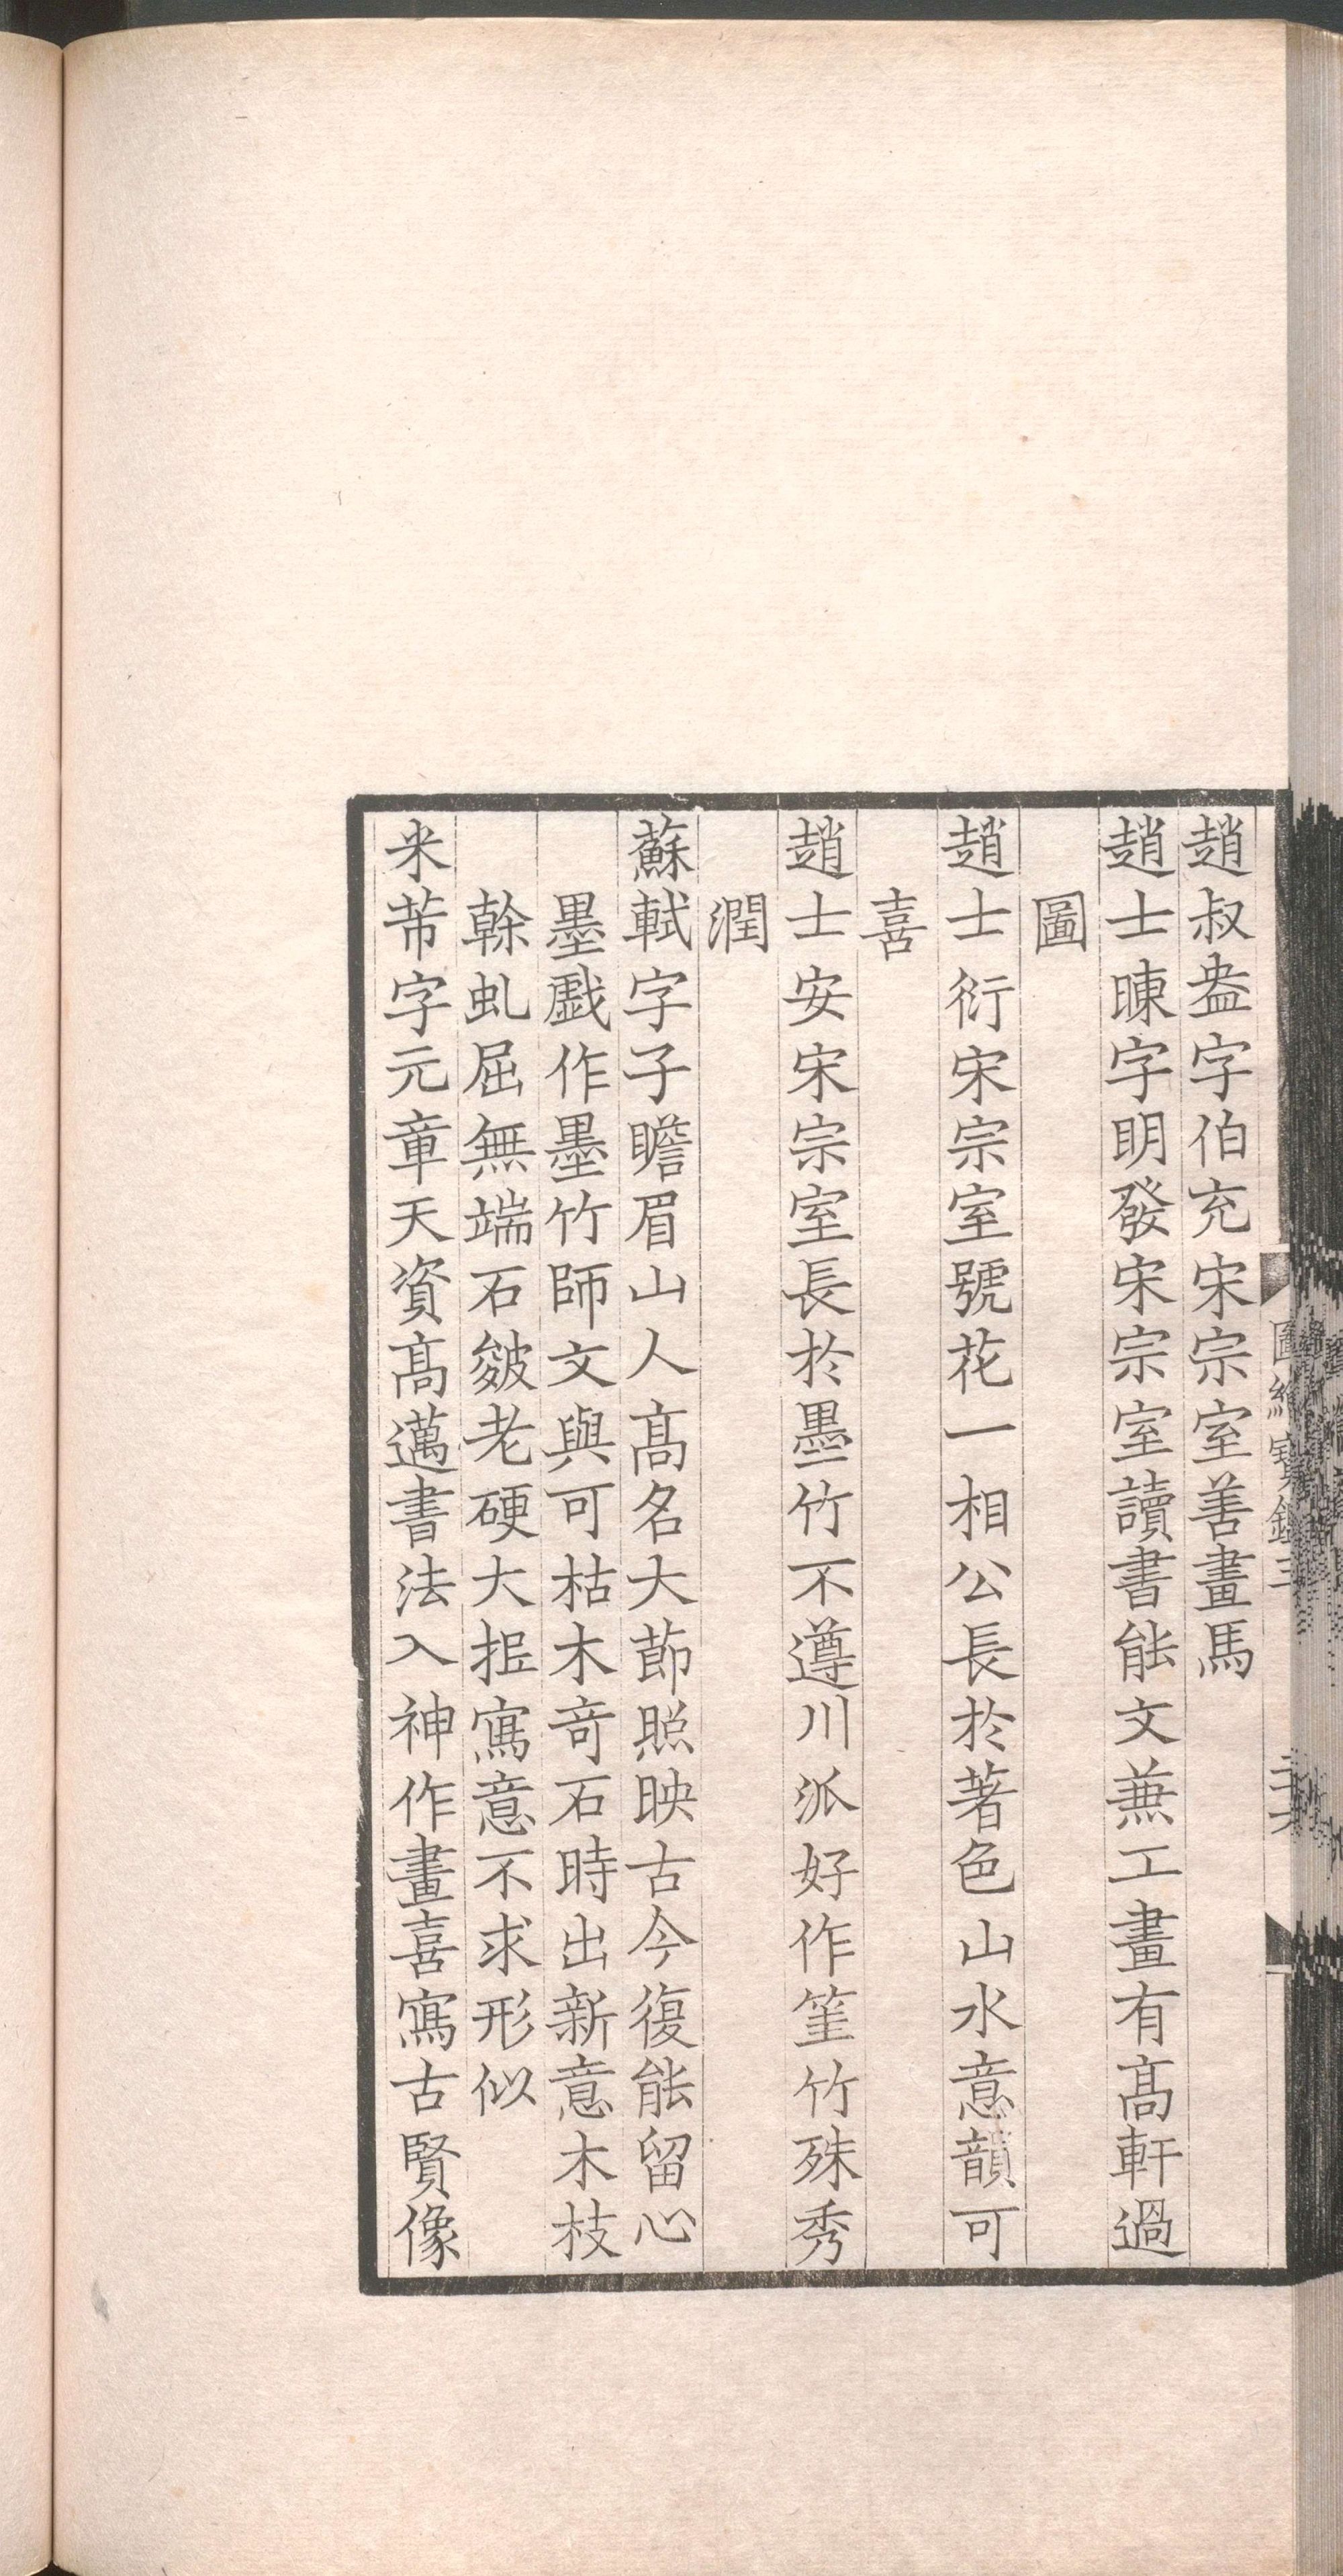 趙叔盎字伯充宋宗室善畫馬
趙士暕字明發宋宗室讀書能文兼工畫有髙軒過
圖
趙士衍宋宗室號花一相公長於著色山水意韻可
喜
趙士安宋宗室長於墨竹不遵川派好作筀竹殊秀
潤
蘇軾字子瞻眉山人髙名大節照映古今復能留心
墨戯作墨竹師文與可枯木竒石時出新意木枝
榦虬屈無端石皴老硬大抵寫意不求形似
米芾字元章天資髙邁書法入神作畫喜寫古賢像
圖繪寳鑑三